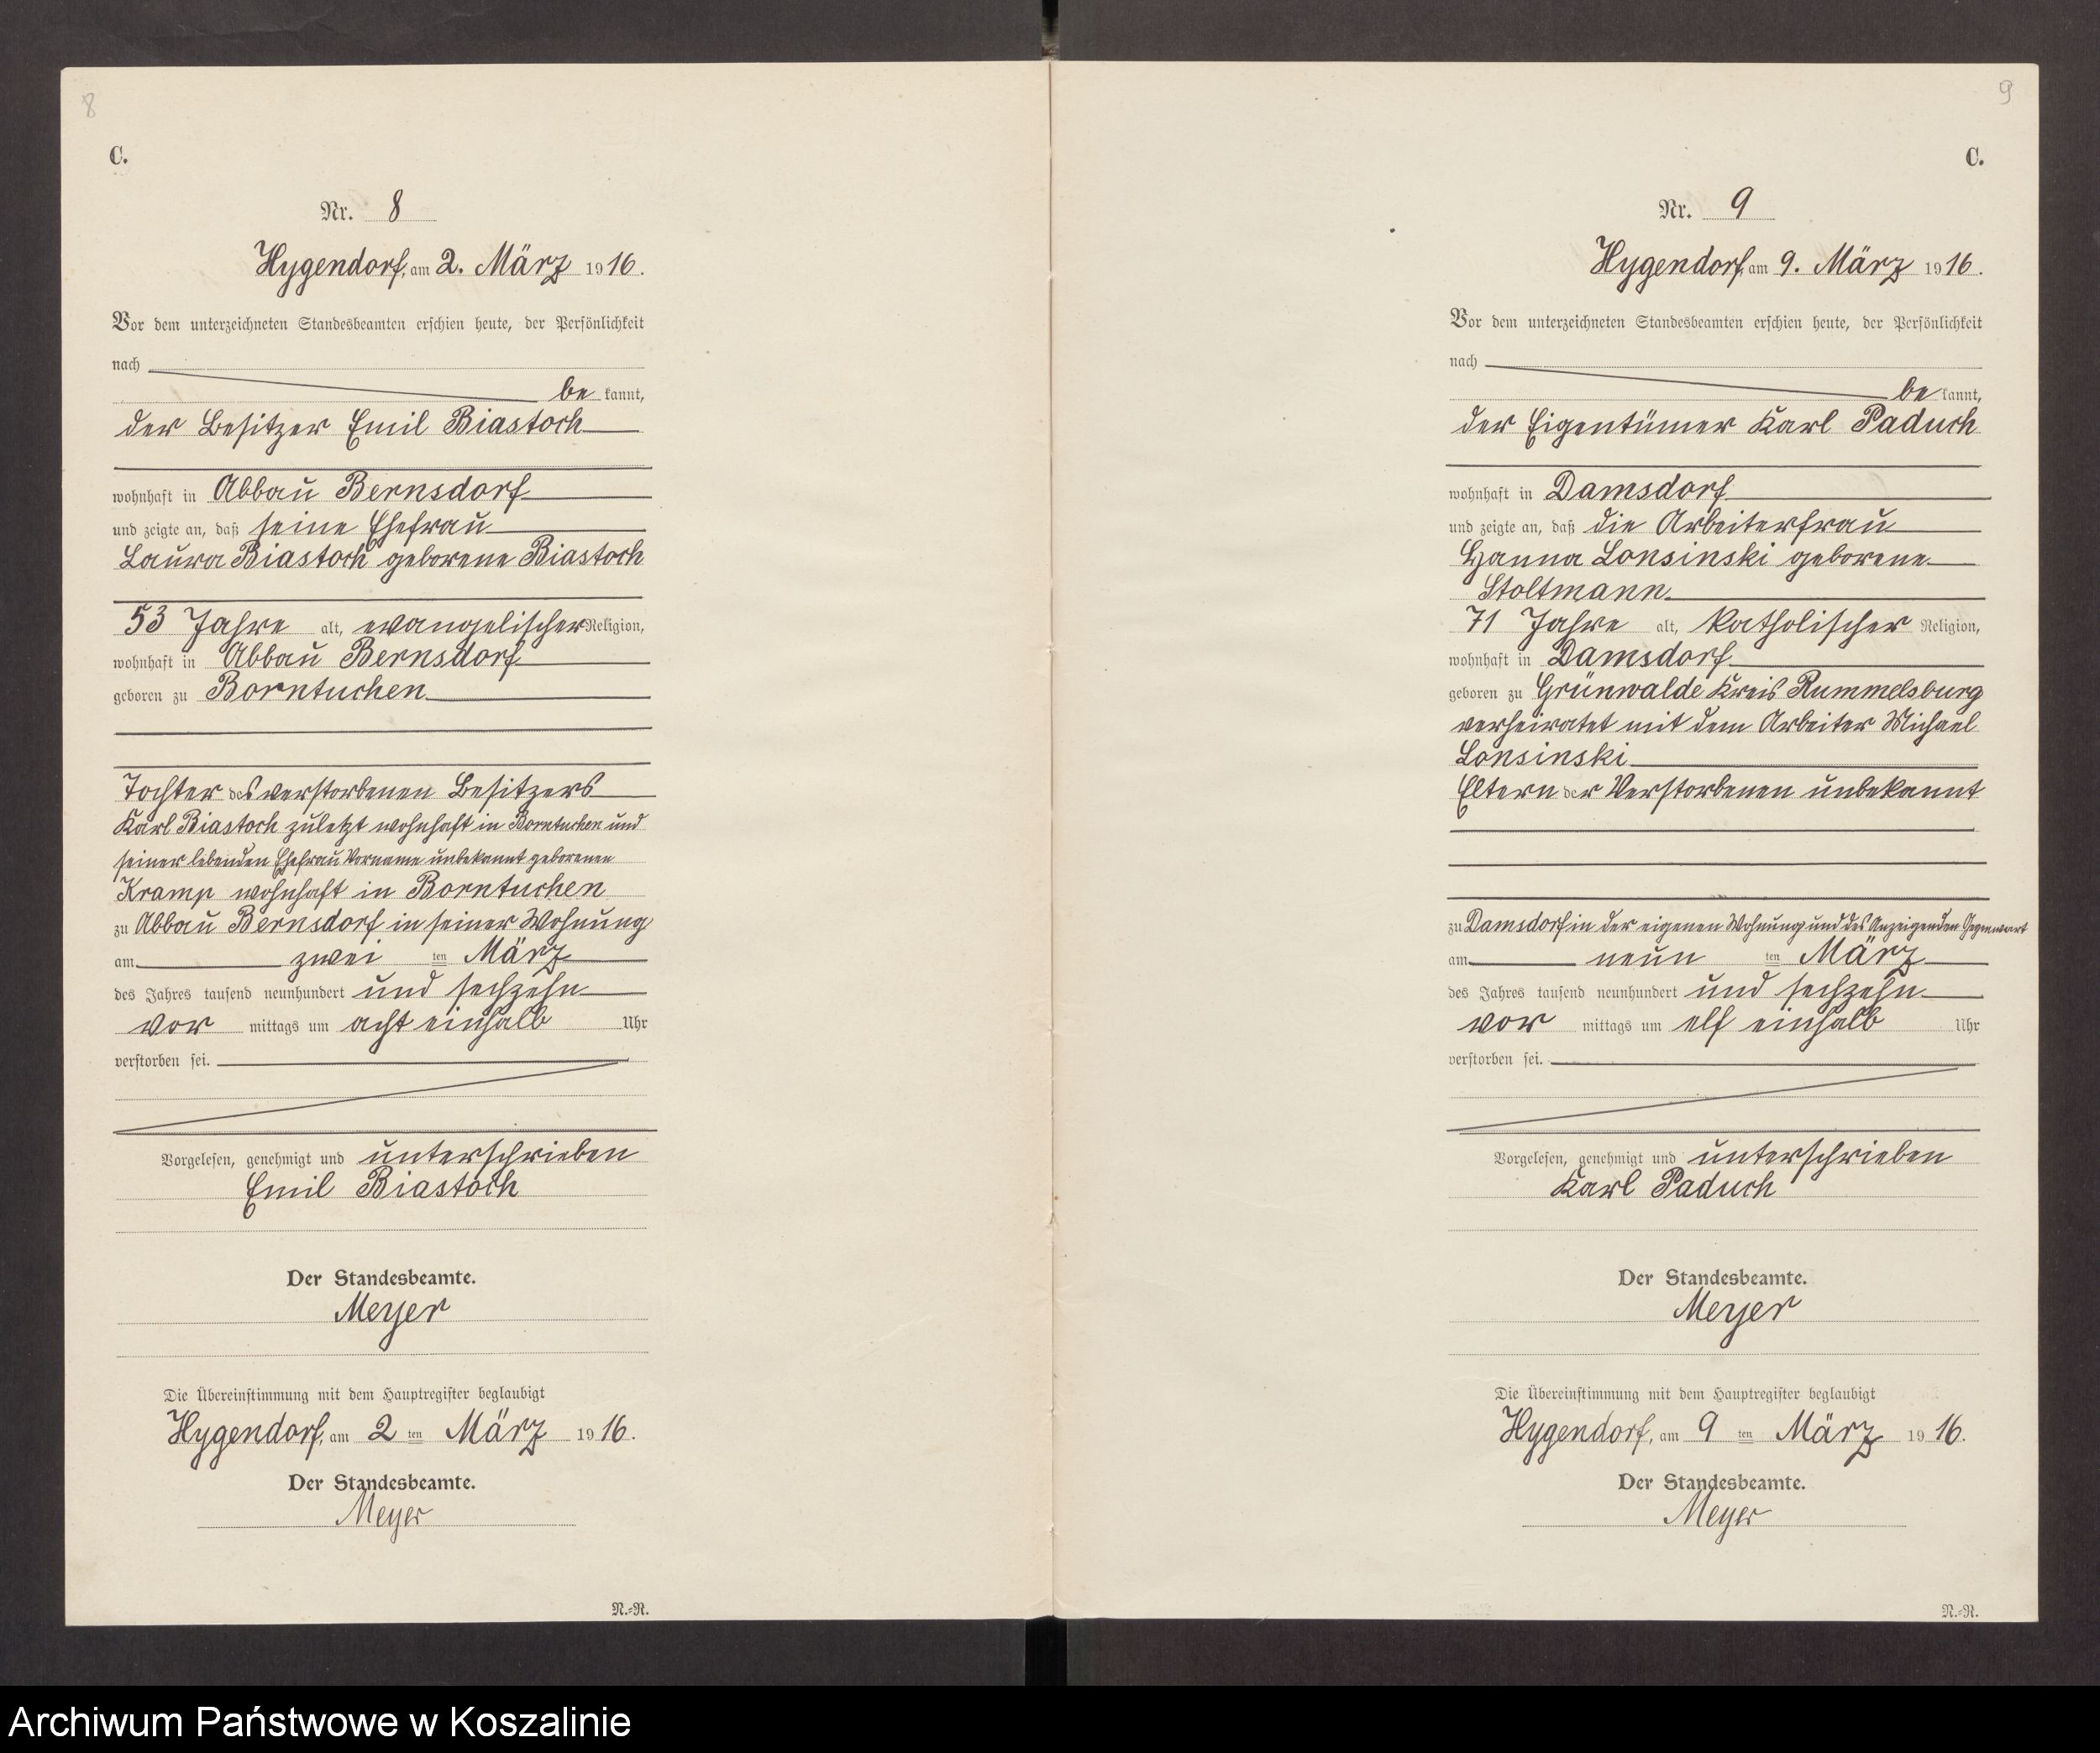 8
C.
Nr. 8
Hygendorf, am 2. März 1916.
Vor dem unterzeichneten Standesbeamten erschien heute, der Persönlichkeit
nach
be kannt,
der Besitzer Emil Biastoch
wohnhaft in Abbau Bernsdorf
und zeigte an, daß seine Ehefrau
Laura Biastoch geborene Biastoch
53 Jahre alt, evangelischer Religion,
wohnhaft in Abbau Bernsdorf
geboren zu Borntuchen
Tochter des verstorbenen Besitzers
Karl Biastoch zuletzt wohnhaft in Borntuchen und
seiner lebenden Ehefrau Vorname unbekannt geborenen
Kramp wohnhaft in Borntuchen
zu Abbau Bernsdorf in seiner Wohnung
am zwei ten März
des Jahres tausend neunhundert und sechzehn
vor mittags um acht einhalb Uhr
verstorben sei.
Vorgelesen, genehmigt und unterschrieben
Emil Biastoch
Der Standesbeamte.
Meyer
Die Übereinstimmung mit dem Hauptregister beglaubigt
Hygendorf, am 2 ten März 1916.
Der Standesbeamte.
Meyer
N.-R.
9
C.
Nr. 9
Hygendorf, am 9. März 1916.
Vor dem unterzeichneten Standesbeamten erschien heute, der Persönlichkeit
nach
be kannt,
der Eigentümer Karl Paduch
wohnhaft in Damsdorf
und zeigte an, daß die Arbeiterfrau
Hanna Lonsinski geborene
Stoltmann
71 Jahre alt, katholischer Religion,
wohnhaft in Damsdorf
geboren zu Grünwalde Kreis Rummelsburg
verheiratet mit dem Arbeiter Michael
Lonsinski
Eltern der Verstorbenen unbekannt
zu Damsdorf in der eigenen Wohnung und des Anzeigenden Gegenwart
am neun ten März
des Jahres tausend neunhundert und sechzehn
vor mittags um elf einhalb Uhr
verstorben sei.
Vorgelesen, genehmigt und unterschrieben
Karl Paduch
Der Standesbeamte.
Meyer
Die Übereinstimmung mit dem Hauptregister beglaubigt
Hygendorf, am 9 ten März 1916.
Der Standesbeamte.
Meyer
N.-R.
Archiwum Państwowe w Koszalinie